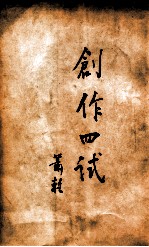 創作四試
蕭乾